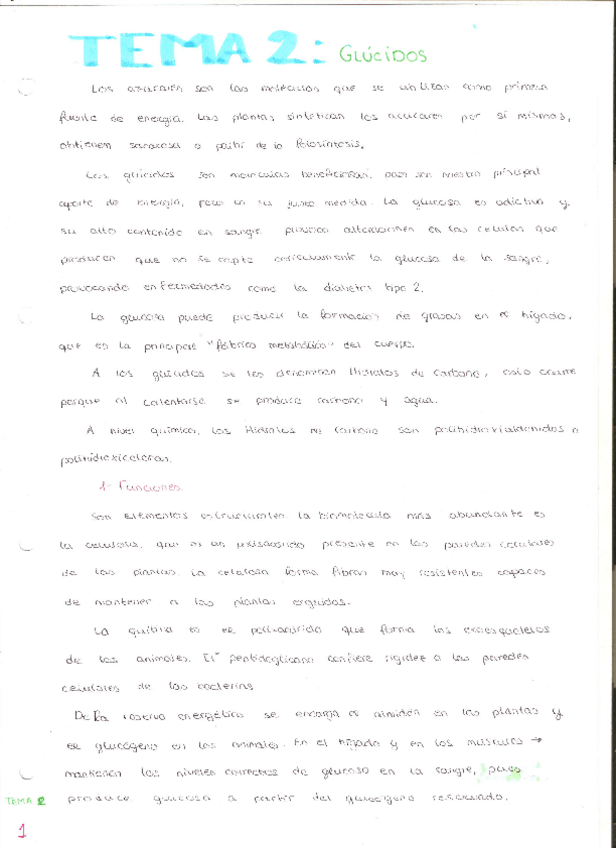 TEMA 2: GLÚCIDOS
Los azúcares son las moléculas que se utilizan como primera
fuente de energía. Las plantas sintetizan los azúcares por sí mismas,
obtienen sacarosa a partir de la fotosíntesis.
Los glúcidos son moléculas beneficiosas, pues son nuestro principal
aporte de energía, pero en su justa medida. La glucosa es adictiva y
su alto contenido en sangre produce alteraciones en las células que
producen que no se capte correctamente la glucosa de la sangre,
provocando enfermedades como la diabetes tipo 2.
La glucosa puede producir la formación de grasas en el hígado,
que es la principal "fábrica metabólica" del cuerpo.
A los glúcidos se les denominan Hidratos de carbono, esto ocurre
porque al calentarse se produce carbono y agua.
A nivel químico, los Hidratos de Carbono son polihidroxialdehídos o
polihidroxicetonas.
1- Funciones
Son elementos estructurales la biomolécula más abundante es
la celulosa, que es un polisacárido presente en las paredes celulares
de las plantas. La celulosa forma fibras muy resistentes capaces
de mantener a las plantas erguidas.
La quitina es el polisacárido que forma los exoesqueletos
de los animales. El peptidoglicano confiere rigidez a las paredes
celulares de las bacterias
De la reserva energética se encarga el almidón en las plantas y
el glucógeno en los animales. En el hígado y en los músculos →
mantienen los niveles correctos de glucosa en la sangre, pues
produce glucosa a partir del glucógeno reservado.
TEMA 2
1